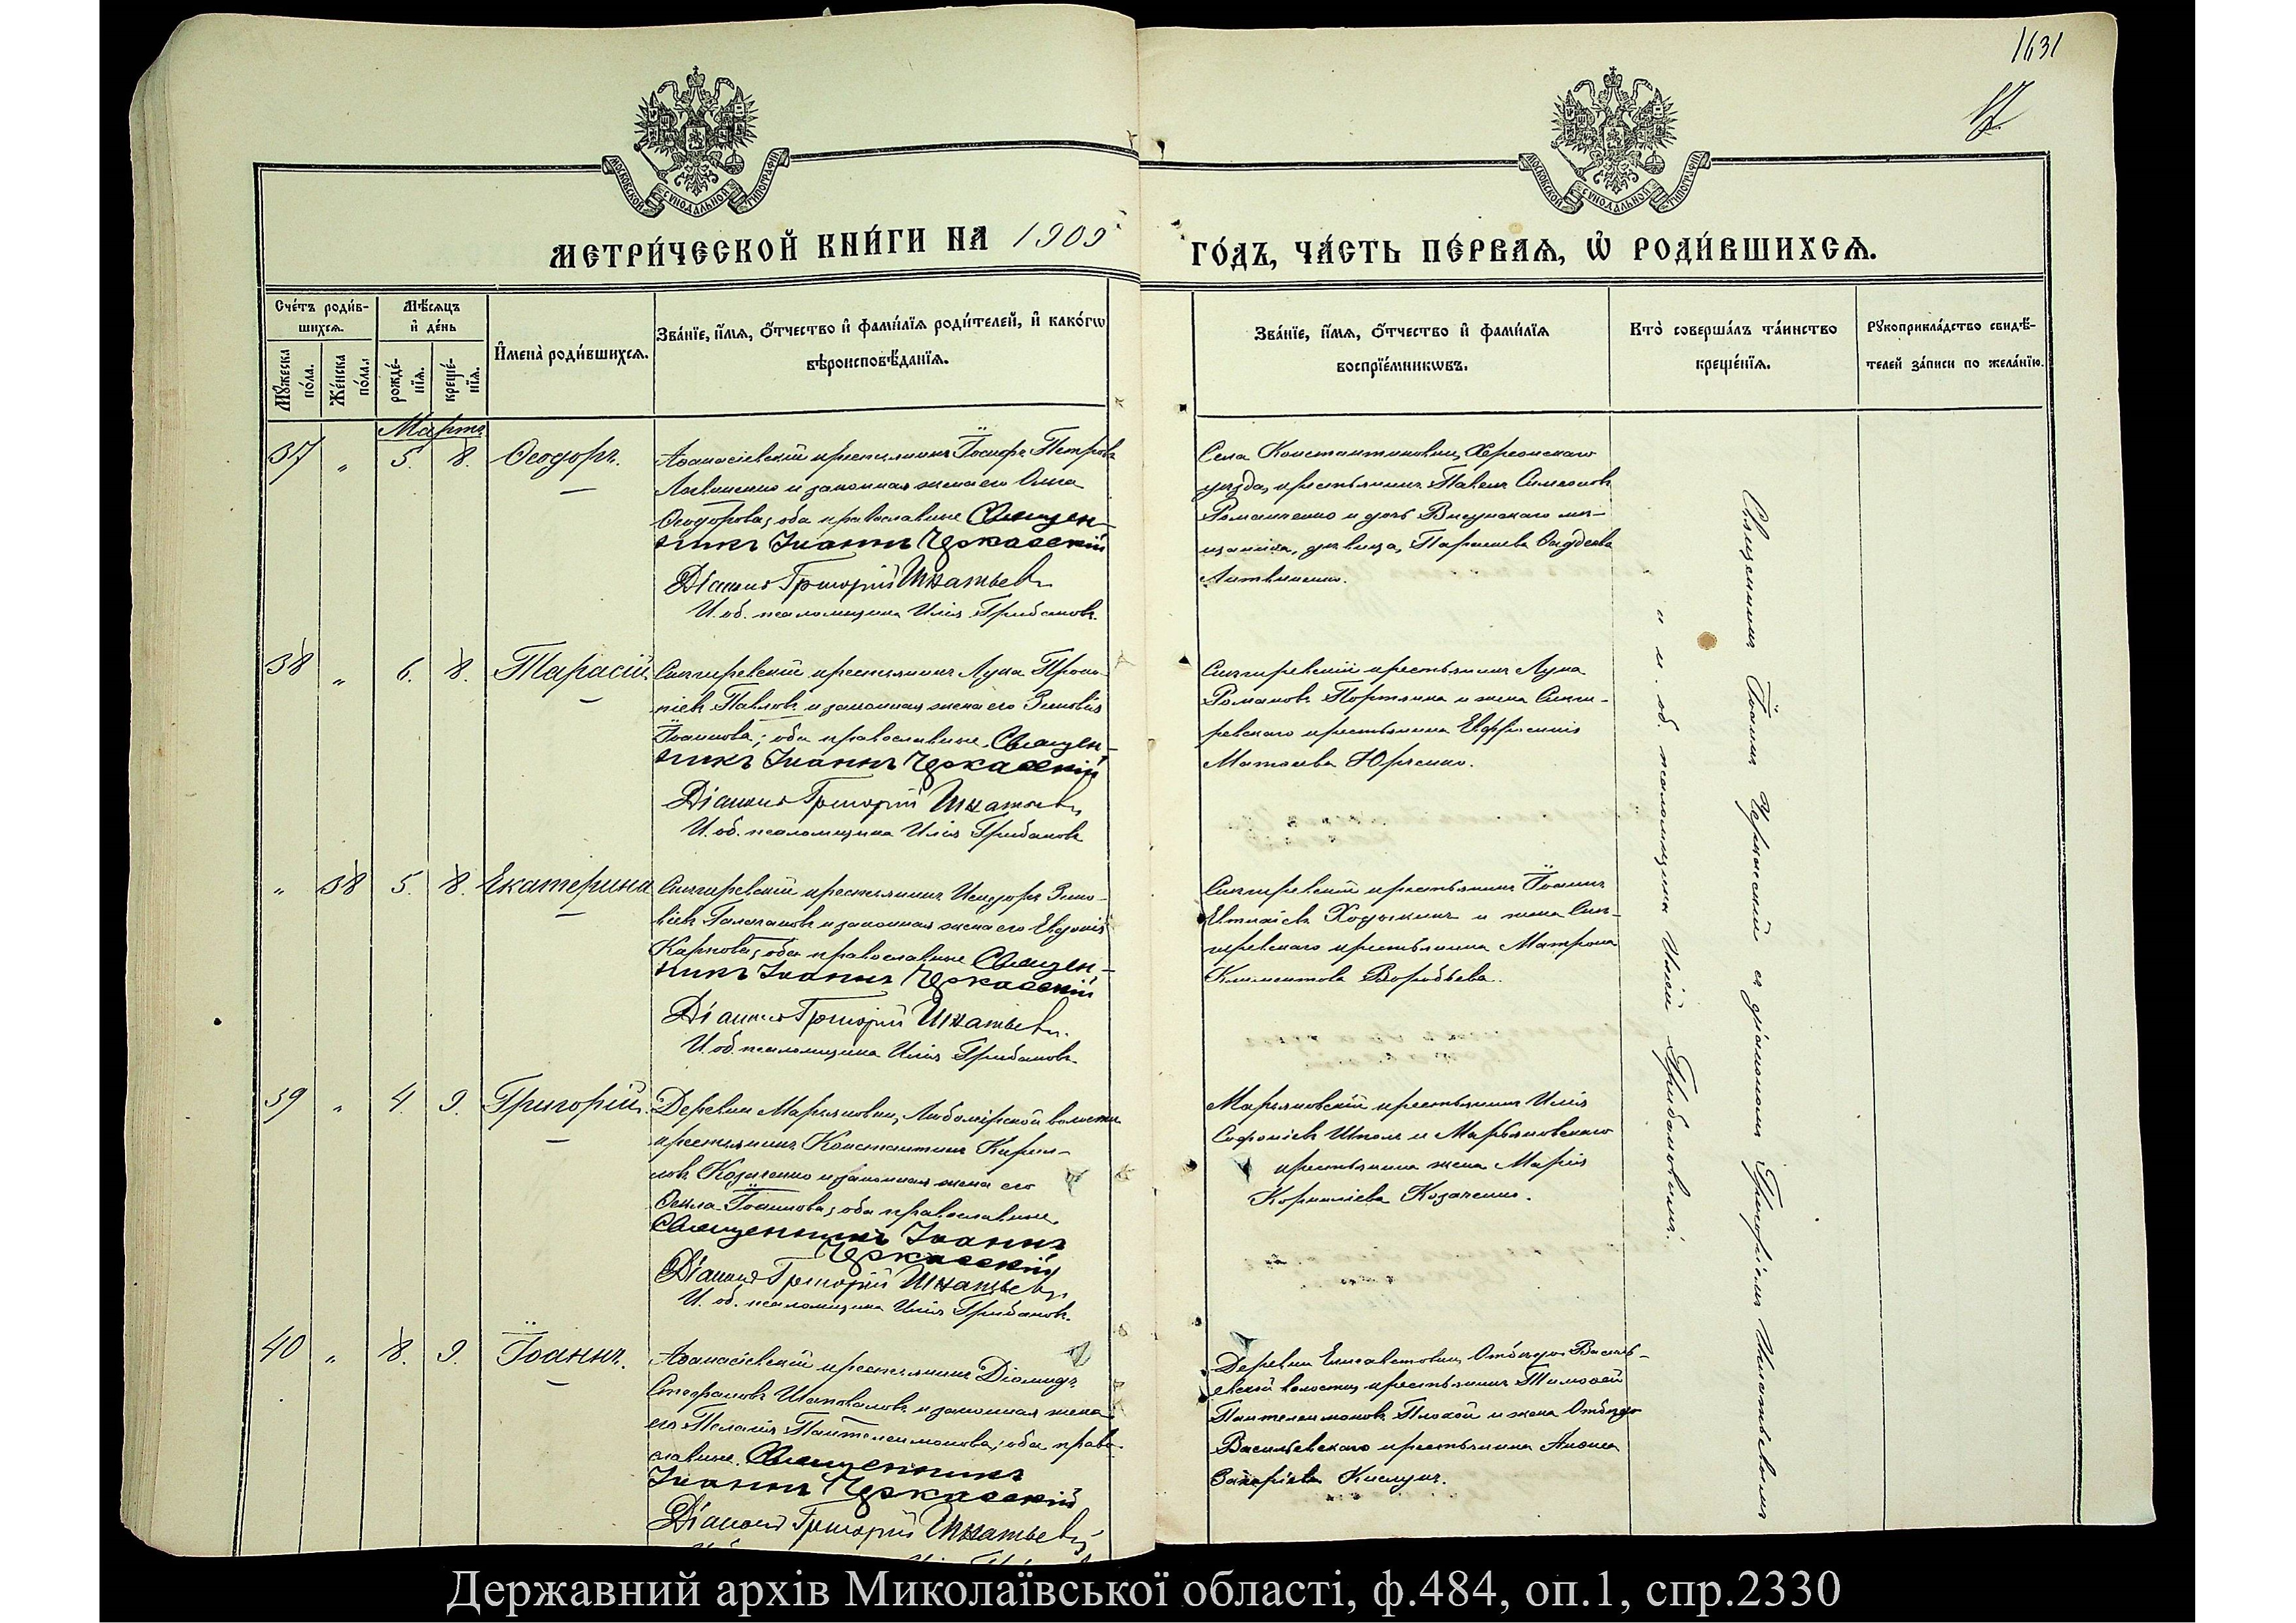 1631
МОСКОВСКОЙ СѴНОДАЛЬНОЙ ТИПОГРАФІИ
МОСКОВСКОЙ СѴНОДАЛЬНОЙ ТИПОГРАФІИ
МЕТРИ́ЧЕСКОЙ КНИ́ГИ НА 1909 ГО́ДЪ, ЧА́СТЬ ПЕ́РВАѦ, Ѡ РОДИ́ВШИХСѦ.
Сче́тъ роди́в-
шихсѧ.
Мѣ́сѧцъ
и де́нь
Мꙋжеска по́ла.
Же́нска по́ла.
рожде́-
нїѧ.
креще́-
нїѧ.
Имена̀ роди́вшихсѧ.
Зва́нїе, и́мѧ, о́тчество и фами́лїѧ роди́телей, и како́гѡ
вѣроисповѣ́данїѧ.
Зва́нїе, и́мѧ, о́тчество и фами́лїѧ
воспрїе́мникѡвъ.
Кто̀ соверша́лъ та́инство
креще́нїѧ.
Рꙋкоприкла́дство свидѣ́-
телей за́писи по жела́нїю.
Мартъ
37 " 5. 8. Ѳеодоръ.
Аѳанасіевскій крестьянинъ Іосифъ Петровъ
Литвиненко и законная жена его Ольга
Ѳеодорова; оба православные Священ-
никъ Іоаннъ Черкасскій
Діаконъ Григорій Игнатьевъ
И. об. псаломщика Илія Грибановъ.
Села Константиновки, Херсонскаго
уѣзда, крестьянинъ Павелъ Симеоновъ
Романченко и дочь Висунскаго мѣ-
щанина, дѣвица, Параскева Ѳаддеева
Литвиненко.
38 " 6. 8. Тарасій.
Снигиревскій крестьянинъ Лука Проко-
піевъ Павловъ и законная жена его Зиновія
Іоаннова; оба православные. Священ-
никъ Іоаннъ Черкасскій
Діаконъ Григорій Игнатьевъ
И. об. псаломщика Илія Грибановъ
Снигиревскій крестьянинъ Лука
Романовъ Портянка и жена Сниги-
ревскаго крестьянина Евфросинія
Матѳеева Юрченко.
" 38 5. 8. Екатерина
Снигиревскій крестьянинъ Исидоръ Зино-
віевъ и законная жена его Евдокія
Карпова; оба православные Священ-
никъ Іоаннъ Черкасскій
Діаконъ Григорій Игнатьевъ.
И. об. псаломщика Илія Грибановъ
Снигиревскій крестьянинъ Іоаннъ
Евтихіевъ Ходыкинъ и жена Сни-
гиревскаго крестьянина Матрона
Климентова Воробьева.
39 " 4. 9. Григорій.
Деревни Марьяновки, Любомірской волости
крестьянинъ Константинъ Кирил-
ловъ Козаченко и законная жена его
Ѳекла Іоаннова; оба православные
Священникъ Іоаннъ
Черкасскій
Діаконъ Григорій Игнатьевъ.
И. об. псаломщика Илія Грибановъ.
Марьяновскій крестьянинъ Илія
Софоніевъ Шполъ и Марьяновскаго
крестьянина жена Марія
Корниліева Козаченко.
40 " 8. 9. Іоаннъ.
Аѳанасіевскій крестьянинъ Діомидъ
Стефановъ Шаповаловъ и законная жена
его Пелагія Пантелеимонова; оба право-
славные. Священникъ
Іоаннъ Черкасскій
Діаконъ Григорій Игнатьевъ
Деревни Елисаветовки, Отбѣдо-Василь-
евской волости, крестьянинъ Тимоѳей
Пантелеимоновъ Плохой и жена Отбѣдо
Васильевскаго крестьянина Анна
Захаріева Кислухъ.
Священникъ Іоаннъ Черкасскій съ діакономъ Григоріемъ Игнатьевымъ
и и. об. псаломщика Иліей Грибановымъ.
Державний архів Миколаївської області, ф.484, оп.1, спр.2330